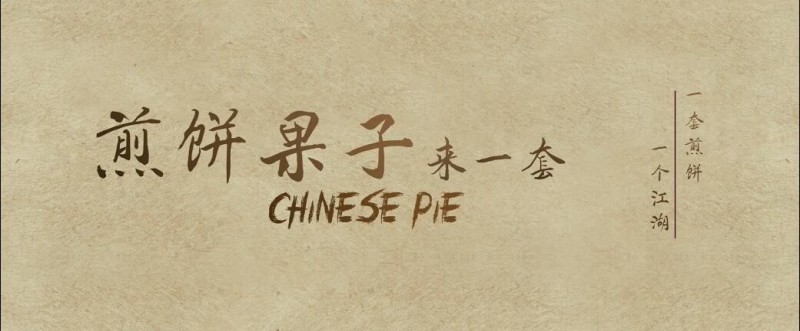 煎饼果子来一套
CHINESE PIE
一套煎饼
一个江湖